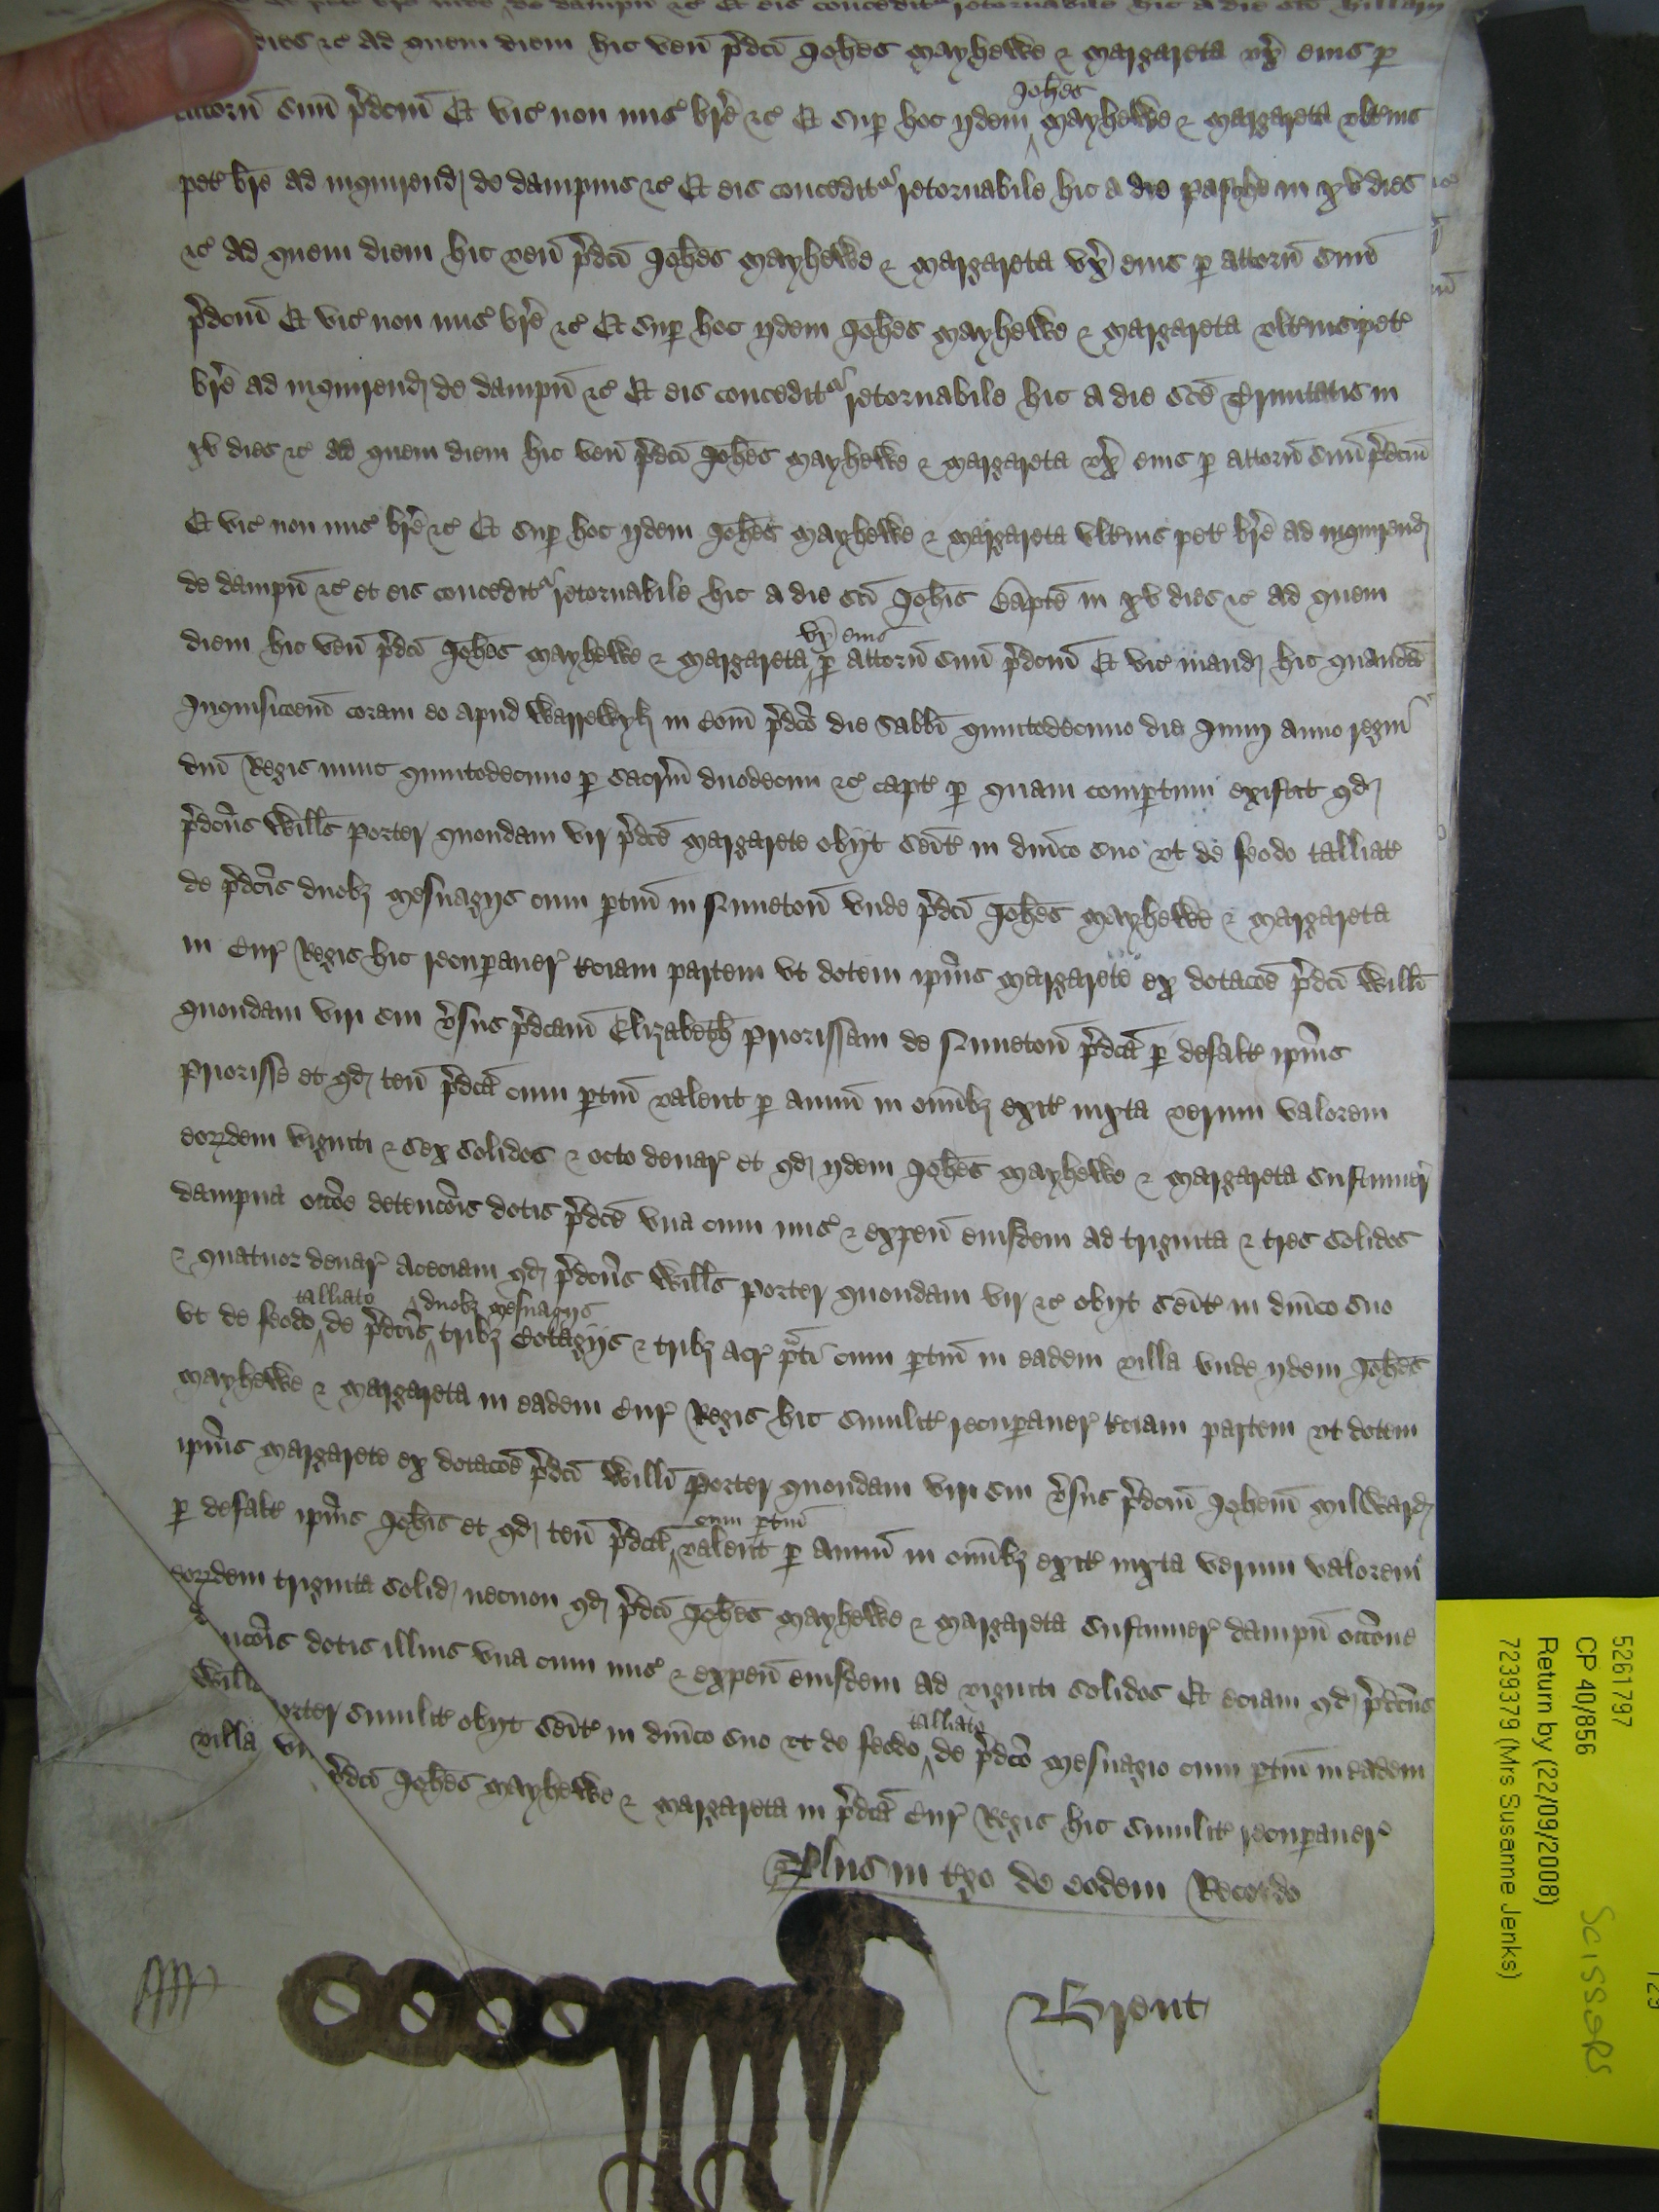 dampn̄ ⁊c̃ Et eis concedit᷑ retornabile hic a die sc̄i hillarij
dies ⁊c̃ ad quem diem hic ven̄ p̄dc̄i Joh̄es Mayhewe ⁊ Margareta vx̄ eius p
attorn̄ suū p̄dcm̄ Et vic̃ non mis̃ br̄e ⁊c̃ Et sup hoc ijdem ^Joh̄es Mayhewe ⁊ Margareta vlt̃ius
pet̃ br̄e ad inquirend̄ de dampnis ⁊c̃ Et eis concedit᷑ retornabile hic a die pasche in xv dies
⁊c̃ ad quem diem hic ven̄ p̄dc̄i Joh̄es Mayhewe ⁊ Margareta vx̄ eius p attorn̄ suū
p̄dcm̄ Et vic̃ non mis̃ br̄e ⁊c̃ Et sup hoc ijdem Joh̄es Mayhewe ⁊ Margareta vlt̃ius pet̃
br̄e ad inquirend̄ de dampn̄ ⁊c̃ Et eis concedit᷑ retornabile hic a die sc̄e Trinitatis in
xv dies ⁊c̃ ad quem diem hic ven̄ p̄dc̄i Joh̄es Mayhewe ⁊ Margareta vx̄ eius p attorn̄ suū p̄dcm̄
Et vic̃ non mis̃ br̄e ⁊c̃ Et sup hoc ijdem Joh̄es Mayhewe ⁊ Margareta vlt̃ius pet̃ br̄e ad inquirend̄
de dampn̄ ⁊c̃ et eis concedit᷑ retornabile hic a die sc̄i Joh̄is Bapte̅ in xv dies ⁊c̃ ad quem
diem hic ven̄ p̄dc̄i Joh̄es Mayhewe ⁊ Margareta ^vx̄ eius p attorn̄ suū p̄dcm̄ Et vic̃ mand̄ hic quandā
Inquisicoem̄ coram eo apud Warrewyk̄ in Com̄ p̄dc̄o die Sabb̄i quintodecimo die Junij anno regni
dn̄i Regis nunc quintodecimo p sacrm̄ duodecim ⁊c̃ capt̃ p quam comptum existit qd̄
p̄dcūs Will̄s Porter quondam vir p̄dc̄e Margarete obijt sei̅t̃ in dn̄ico suo vt de feodo talliat̃
de p̄dc̄is duobȝ mesuagijs cum ptin̄ in Nuneton̄ vnde p̄dc̄i Joh̄es Mayhewe ⁊ Margareta
in Cur̃ Regis hic recupauer̃ tciam partem vt dotem ip̄ius Margarete ex dotacōe p̄dc̄i Will̄i
quondam viri sui v̄sus p̄dcam̄ Elizabeth̄ Priorissam de Nuneton̄ p̄dc̄ā p defalt̃ ip̄ius
Priorisse et qd̄ ten̄ p̄dc̄ā cum ptin̄ valent p annū in om̄ibȝ exit̃ iuxta verum valorem
eorꝝdem viginti ⁊ sex solidos ⁊ octo denar̃ et qd̄ ijdem Joh̄es Mayhewe ⁊ Margareta sustinuer̃
dampna occōe detencōis dotis p̄dc̄e vna cum mis̃ ⁊ expen̄ eiusdem ad triginta ⁊ tres solidos
⁊ quatuor denar̃ aceciam qd̄ p̄dcūs Will̄s Porter quondam vir ⁊c̃ obijt sei̅t̃ in dn̄ico suo
vt de feodo ^talliato de p̄dc̄is ^duobȝ mesuagijs tribȝ Cotagijs ⁊ tribȝ acr̃ p̄ti cum ptin̄ in eadem villa vnde ijdem Joh̄es
Mayhewe ⁊ Margareta in eadem Cur̃ Regis hic similit̃ recupauer̃ tciam partem vt dotem
ip̄ius Margarete ex dotacōe p̄dc̄i Will̄i Porter quondam viri sui v̄sus p̄dcm̄ Joh̄em Milward̄
p defalt̃ ip̄ius Joh̄is et qd̄ ten̄ p̄dc̄ā ^cum ptin̄ valent p annū in om̄ibȝ exit̃ iuxta verum valorem
eorꝝdem triginta solid̄ necnon qd̄ p̄dc̄i Joh̄es Mayhewe ⁊ Margareta sustinuer̃ dampn̄ occōne
ncōis dotis illius vna cum mis̃ ⁊ expen̄ eiusdem ad viginti solidos Et eciam qd̄ p̄dcūs
Will orter similit̃ obijt sei̅t̃ in dn̄ico suo vt de feodo ^talliato de p̄dc̄o mesuagio cum ptin̄ in eadem
villa vn p̄dc̄i Joh̄es Mayhewe ⁊ Margareta in p̄dc̄ā Cur̃ Regis hic similit̃ recupauer̃
Plus in tgo de eodem Recordo
Brent
5261797
CP 40/856
Return by (22/09/2008)
7239379 (Mrs Susanne Jenks)
Scissors